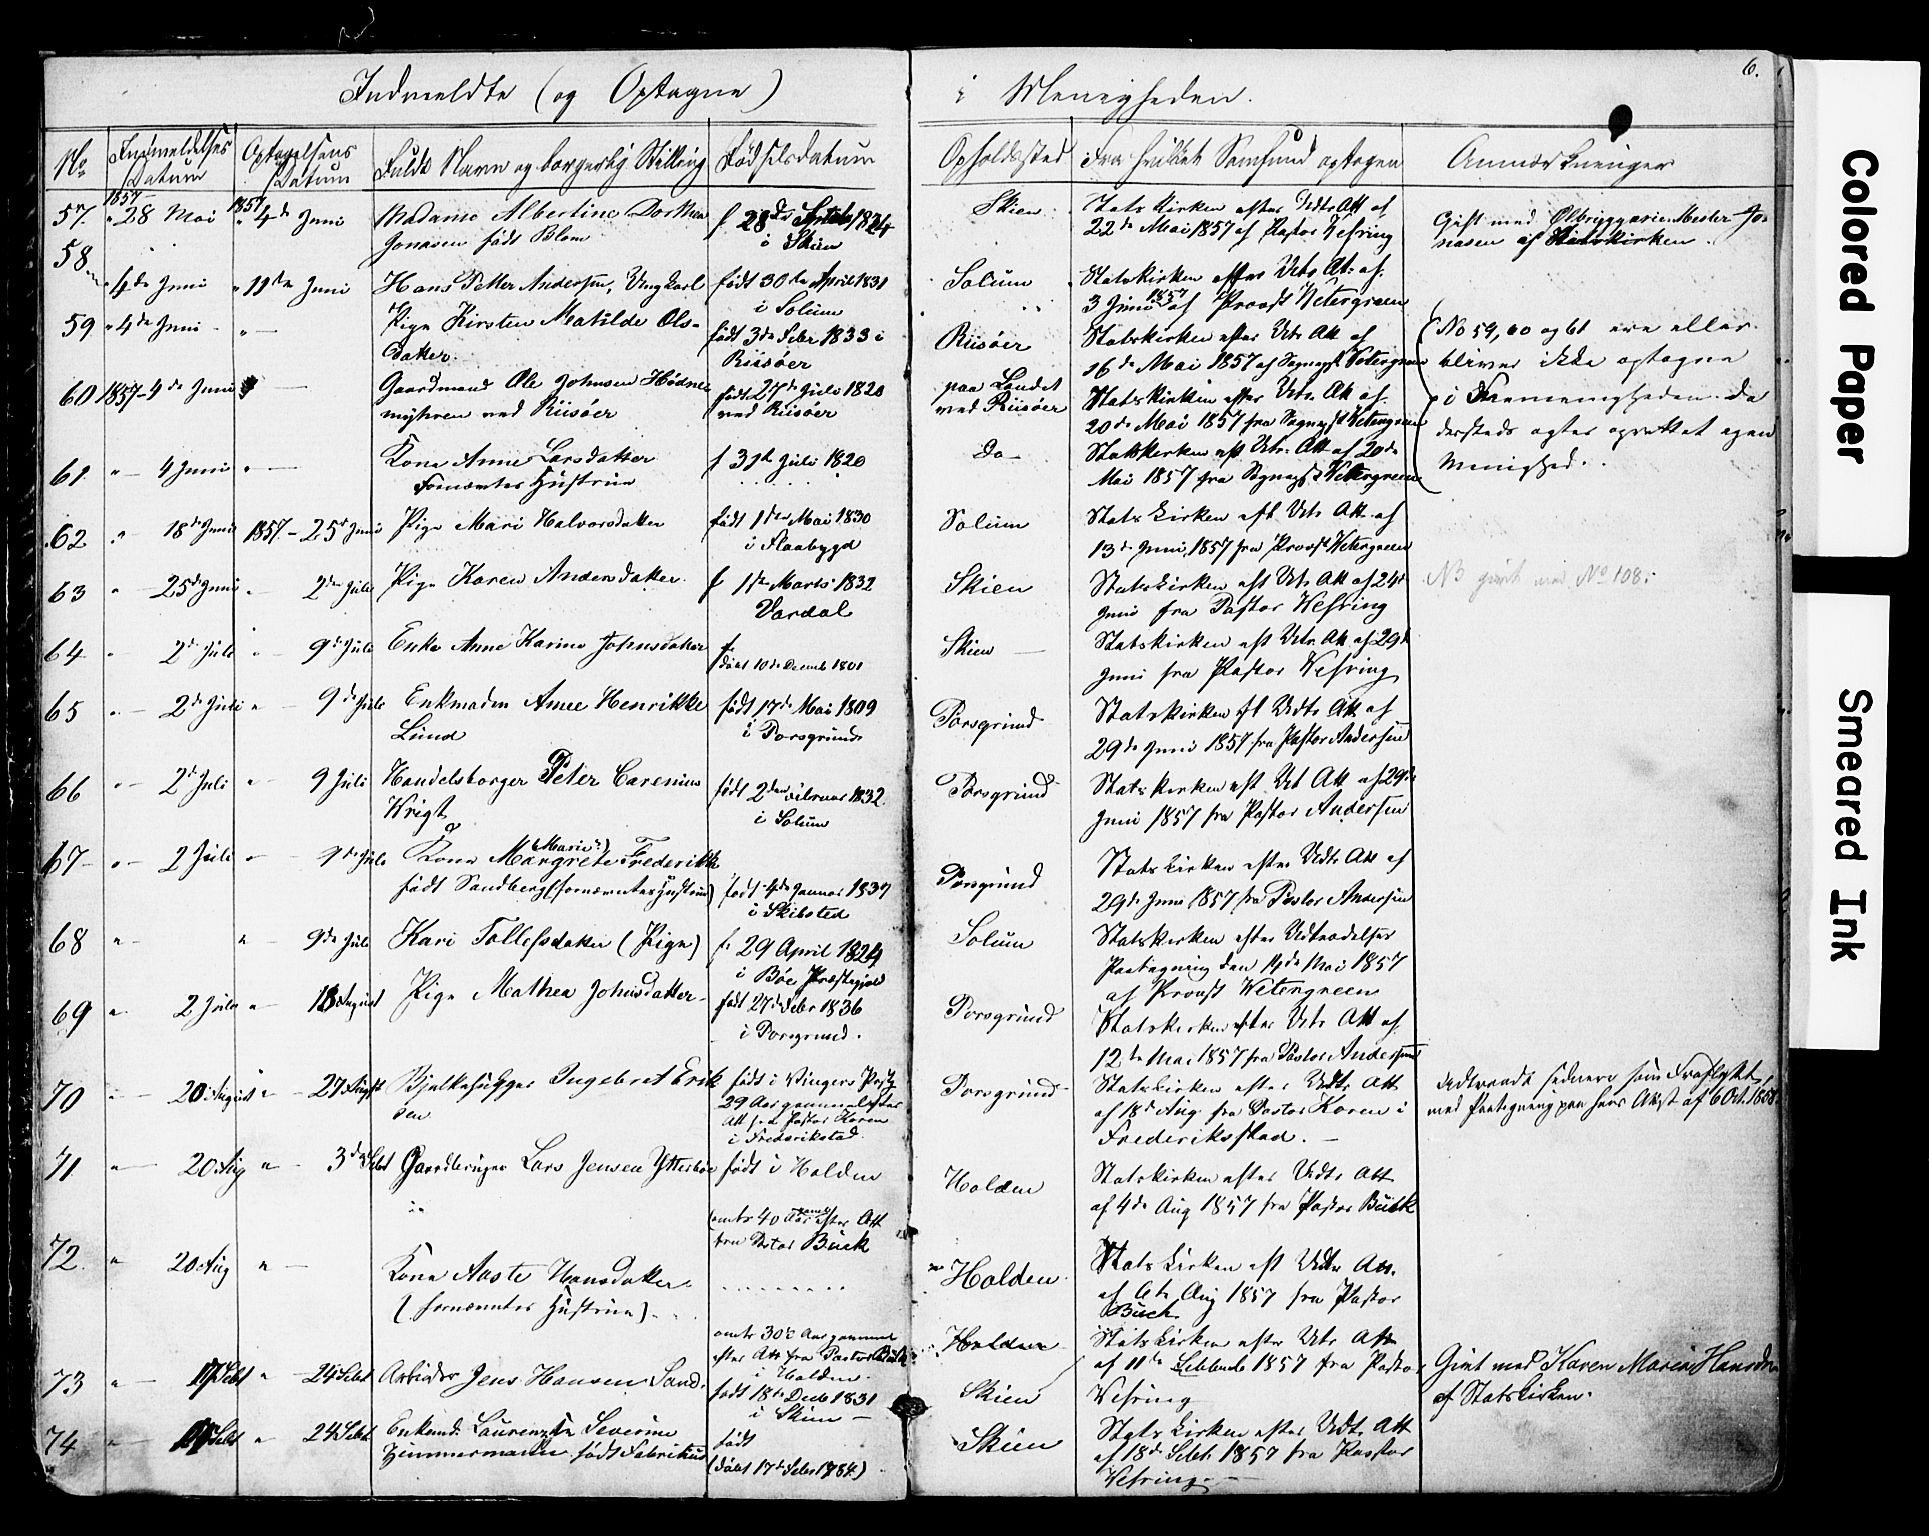 Indmeldte (og Optagne) i Menigheden.
6.
No
Indmeldelses Datum
Optagelsens Datum
Fulde Navn og borgerlig Stilling
Fødselsdatum
Opholdssted
Fra hvilket Samfund optagen
Anmærkninger
57. 1857 " 28 Mai 1857 " 4de Juni Madame Albertine Dorthea
Jonasen født Blom
f 28de 1824
i Skien
Skien
Stats Kirken efter Udtr Att af
22de Mai 1857 af Pastor Wefring
Gift med Ølbryggerie Mester Jo-
nasen af Statskirken.
58 " 4de Juni " 11te Juni Hans Petter Andersen, Ungkarl
født 30te April 1831
i Solum
Solum
Statskirken efter Udtr Att af
3 Juni 1857 af Provst Wetergreen
59 " 4de Juni - " —
Pige Kirsten Matilde Ols-
datter.
født 3de Febr 1833 i
Riisøer
Riisøer
Statskirken efter Udtr Att af
16de Mai 1857 af Sognepst Wetergreen
No 59, 60 og 61 ere eller
bliver ikke optagne
i Frimenigheden da
dersteds agtes oprettet egen
Menighed.
60 1857 - 4de Juni " —
Gaardmand Ole Johnsen Hødne-
myhren ved Riisøer
født 27de Juli 1820
ved Riisøer
paa Landet
ved Riisøer
Statskirken efter Udtr Att af
20de Mai 1857 fra Sognepst Wetergreen
61. " - 4 Juni " —
Kone Anne Larsdatter
Fornævntes Hustrue
f 3 Juli 1820
do -
Statskirken eft Udtr. Att af 20de
Mai 1857 fra Sognepst Wetergreen
62 " - 18de Juni 1857 - 25de Juni Pige Mari Halvorsdatter
født 1den Mai 1830
i Flaabygd
Solum
Stats Kirken eft Udtr Att af
13de Juni 1857 fra Provst Wetergreen
63 " - 25de Juni " - 2den Juli Pige Karen Andersdatter
f 1ste Marts 1832
Vardal
Skien
Statskirken eft Udtr Att af 24de
Juni fra Pastor Wefring
NB givt med No 108.
64 " - 2de Juli " - 9de Juli Enke Anne Karine Johnsdatter
f
døbt 10de Decemb 1801
Skien —
Statskirken eft Udtr Att af 29de
Juni fra Pastor Wefring
65 " - 2de Juli " - 9de Juli Enkmaden Anne Henrikke
Lund
født 17de Mai 1809
i Porsgrund
Porsgrund
Statskirken eft Udtr Att af
29de Juni 1857 fra Pastor Andersen
66 " - 2de Juli " - 9 Juli Handelsborger Peter Carenius
Wrigt
født 2den Februar 1832
i Solum
Porsgrund
Statskirken eft. Udt Att af 29de
Juni 1857 fra Pastor Andersen
67 - " - 2 Juli " - 9de Juli Kone Margrete (Marie) Frederikke
født Sandberg (fornævntes Hustrue)
født 4de Januar 1837
i Skibsted
Porsgrund
Stats Kirken efter Udtr Att af
29de Juni 1857 fra Pastor Andersen
68 " - " - 9de Juli Kari Tollefsdatter (Pige)
f. 29 April 1824
i Bøe Præstegjeld
Solum
Statskirken efter Udtrædelses
Paategning den 14de Mai 1857
af Provst Wetergreen
69 " 2 Juli " - 13 August Pige Mathea Johnsdatter -
født 27de Febr 1836
i Porsgrund.
Porsgrund
Statskirken efter Udtr Att af
12te Mai 1857 fra Pastor Andersen
70 " - 20 August " - 27 August Bjelkehugger Ingebret Erik
sen
født i Vingers Præstg
29 Aar gammel efter
Att fra Pastor Koren
i Frederikstad
Porsgrund
Statskirken efter Udtr Att
af 18de Aug. fra Pastor Koren i
Frederiksstad. —
Udtraadt senere som Fraflyttet,
med Paategning paa hans Attst af 6 Oct. 1858
71 " — 20 Aug " — 3de Sebt Gaardbruger Lars Jensen Ytterbøe
født i Holden
omtr 40 Aar gaml efter Att
fra Pastor Buck
Holden
Statskirken efter Udtr Att
af 4de Aug 1857 fra Pastor Buck
72. " 20 Aug " —
Kone Aaste Hansdatter
(fornævntes Hustrue).
omtr 30te Aar gammel
efter Att fra Pastor Buck
i Holden.
Holden
Stats Kirken eft Udtr Att.
af Aug 1857 fra Pastor
Buch
73 " - 17 Sebt " - 24 Sebt Arbeider Jens Hansen Sand.
født 18de Decb 1831
i Skien —
Holden
Skien
Stats Kirken efter Udtr Att
af 11te Sebtembr 1857 fra Pastor
Wefring
Givt med Karen Maria Hansdr
af Statskirken.
74 " - Sebt " 24 Sebt Enkemd. Laurentze Severine
Zimmermann født Fabritius
født
(døbt 17de Febr 1784)
Skien
Stats Kirken efter Udtr Att
af 18de Sebt. 1857 fra Pastor
Wefring. —
Colored Paper
Smeared Ink